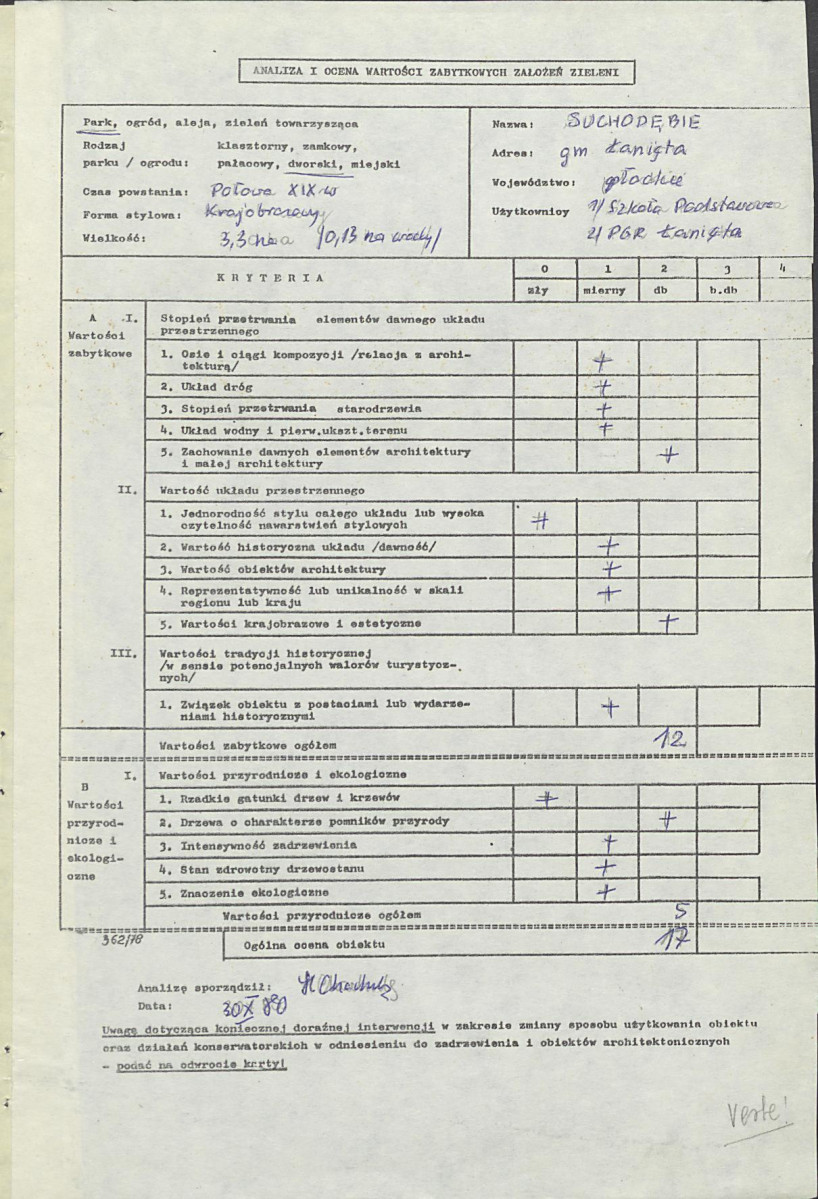 ANALIZA I OCENA WARTOŚCI ZABYTKOWYCH ZAŁOŻEŃ ZIELENI
Park, ogród, aleja, zieleń towarzysząca
Rodzaj klasztorny, zamkowy,
parku / ogrodu: pałacowy, dworski, miejski
Czas powstania: Połowa XIX w
Forma stylowa: Krajobrazowy
Wielkość: 3,3 ha /0,13 ha wody/
Nazwa: SUCHODĘBIE
Adres: gm Łanięta
Województwo: płockie
Użytkownicy 1/ Szkoła Podstawowa
2/ PGR Łanięta
KRYTERIA 0 1 2 3 4
zły mierny db b.db
A I. Stopień przetrwania elementów dawnego układu
Wartości przestrzennego
zabytkowe 1. Osie i ciągi kompozycji /relacja z archi-
tekturą/ +
2. Układ dróg +
3. Stopień przetrwania starodrzewia +
4. Układ wodny i pierw.ukszt.terenu +
5. Zachowanie dawnych elementów architektury
i małej architektury +
II. Wartość układu przestrzennego
1. Jednorodność stylu całego układu lub wysoka
czytelność nawarstwień stylowych +
2. Wartość historyczna układu /dawność/ +
3. Wartość obiektów architektury +
4. Reprezentatywność lub unikalność w skali
regionu lub kraju +
5. Wartości krajobrazowe i estetyczne +
III. Wartości tradycji historycznej
/w sensie potencjalnych walorów turystycz-
nych/
1. Związek obiektu z postaciami lub wydarze-
niami historycznymi +
Wartości zabytkowe ogółem 12
B I. Wartości przyrodnicze i ekologiczne
Wartości 1. Rzadkie gatunki drzew i krzewów +
przyrod- 2. Drzewa o charakterze pomników przyrody +
nicze i 3. Intensywność zadrzewienia +
ekologi- 4. Stan zdrowotny drzewostanu +
czne 5. Znaczenie ekologiczne +
Wartości przyrodnicze ogółem 5
362/78 Ogólna ocena obiektu 17
Analizę sporządził:
Data: 30 X 80
Uwagę dotycząca koniecznej doraźnej interwencji w zakresie zmiany sposobu użytkowania obiektu
oraz działań konserwatorskich w odniesieniu do zadrzewienia i obiektów architektonicznych
- podać na odwrocie karty!
Verte!